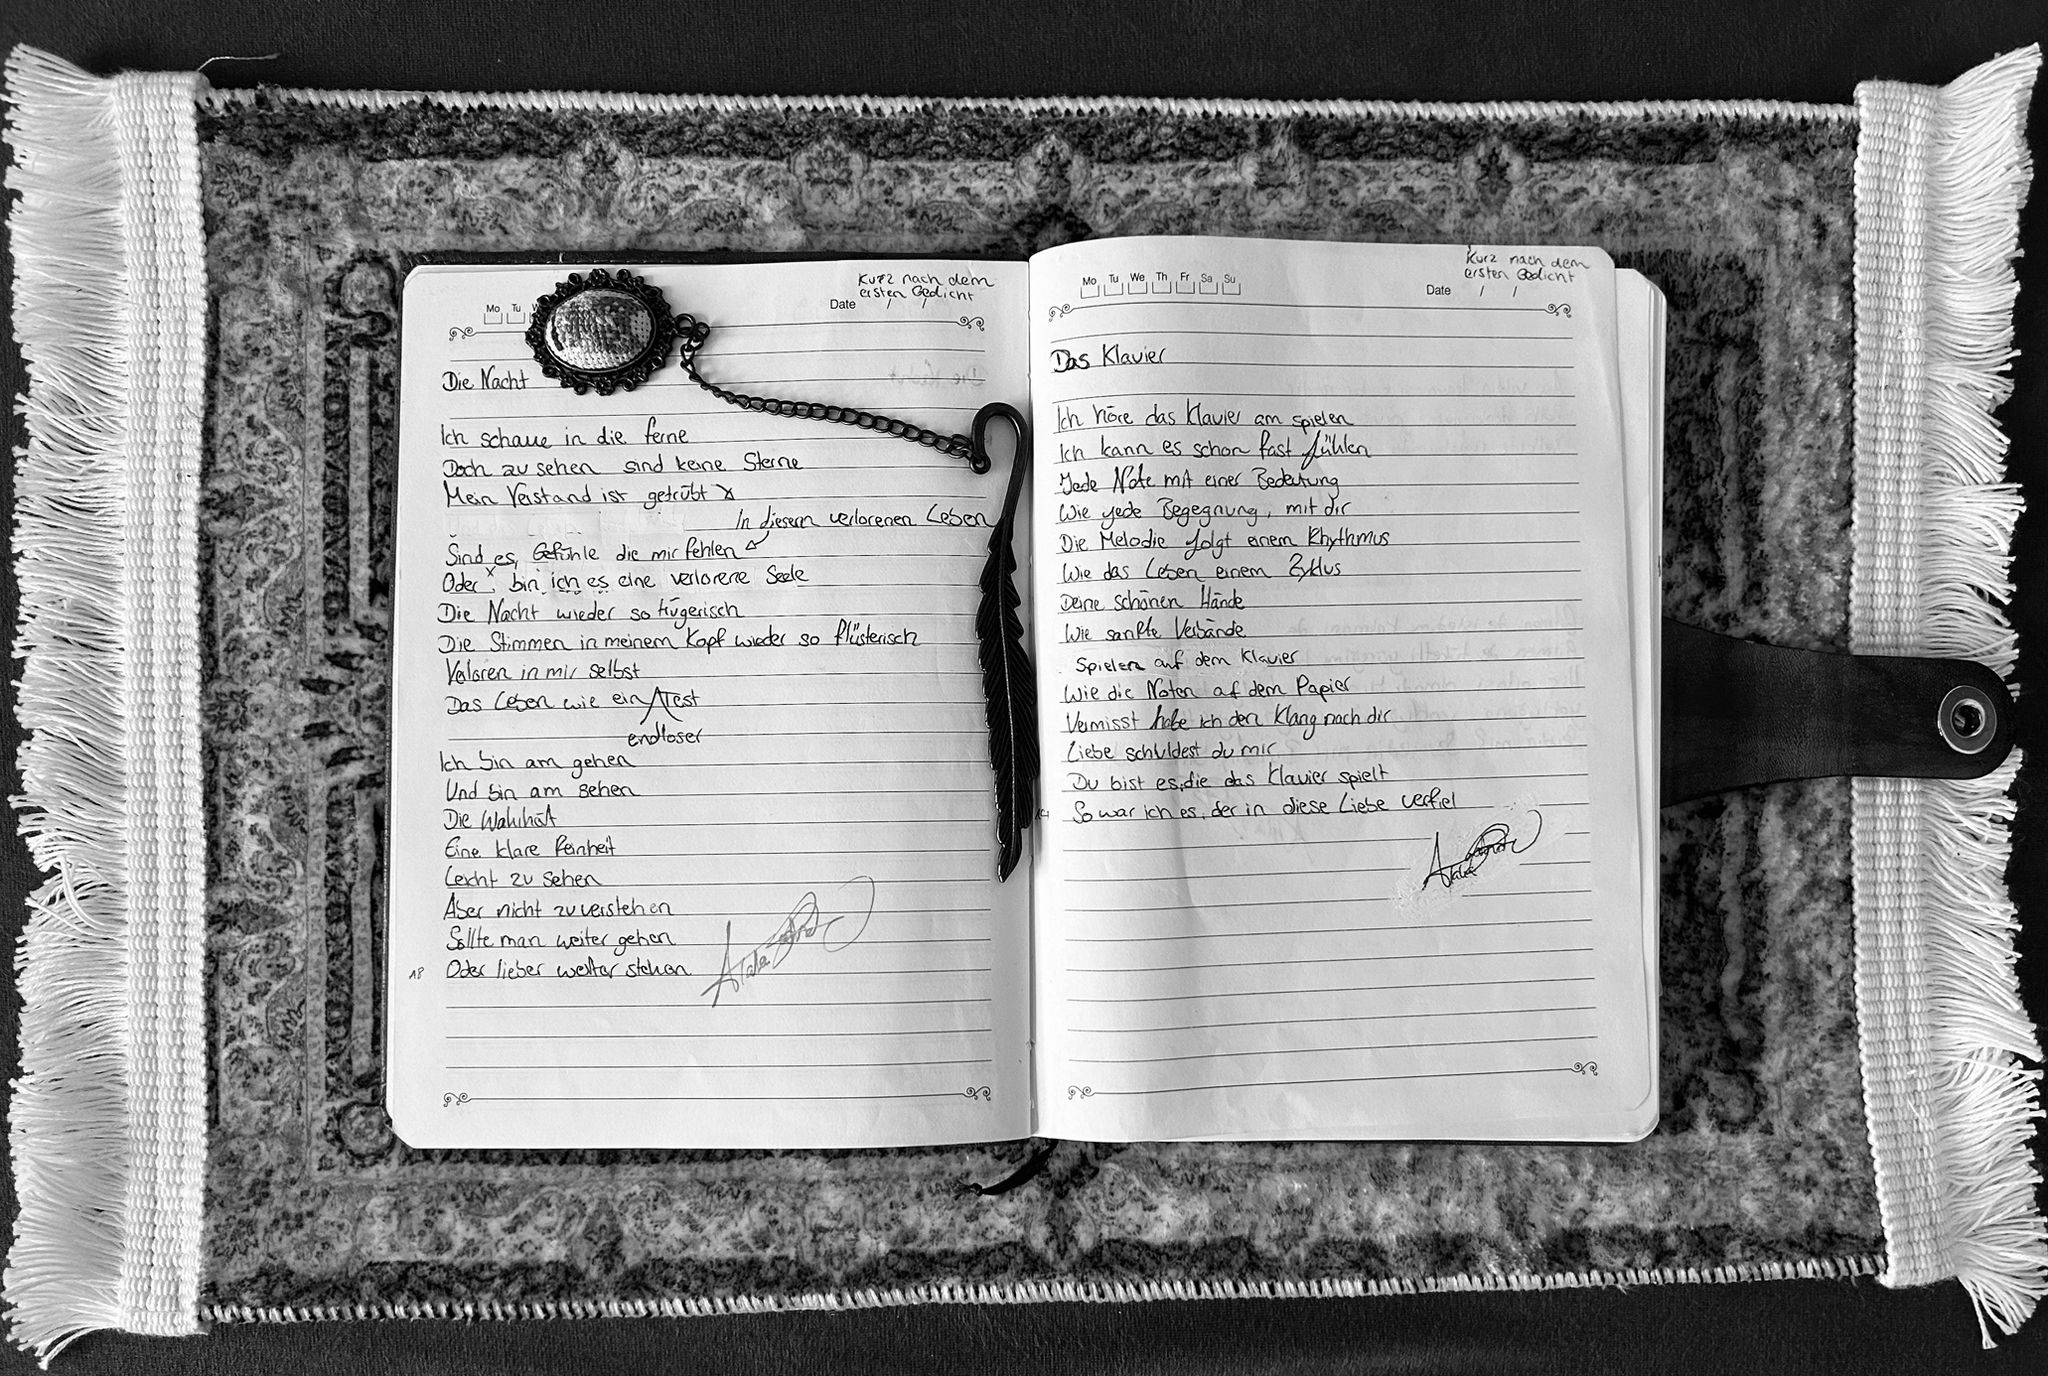 Mo Tu
Kurz nach dem
ersten Gedicht
Date / /
Die Nacht
Ich schaue in die ferne
Doch zu sehen sind keine Sterne
Mein Verstand ist getrübt
In diesem verlorenen Leben
Sind es, Gefühle die mir fehlen
Oder bin ich es eine verlorene Seele
Die Nacht wieder so trügerisch
Die Stimmen in meinem Kopf wieder so flüsterisch
Verloren in mir selbst
Das Leben wie ein Test
endloser
Ich bin am gehen
Und bin am sehen
Die Wahrheit
Eine klare Feinheit
Leicht zu sehen
Aber nicht zu verstehen
Sollte man weiter gehen
18 Oder lieber weiter stehen
Mo Tu We Th Fr Sa Su
Kurz nach dem
ersten Gedicht
Date / /
Das Klavier
Ich höre das Klavier am spielen
Ich kann es schon fast fühlen
Jede Note mit einer Bedeutung
Wie jede Begegnung, mit dir
Die Melodie folgt einem Rhythmus
Wie das Leben einem Zyklus
Deine schönen Hände
Wie sanfte Verbände
Spielen auf dem Klavier
Wie die Noten auf dem Papier
Vermisst habe ich den Klang nach dir
Liebe schuldest du mir
Du bist es, die das Klavier spielt
14 So war ich es, der in diese Liebe verfiel